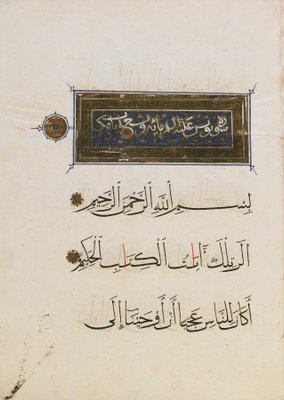 سورة يونس عليه السلام مايه وتسع ايات مكية
بِسْمِ اللَّهِ الرَّحْمَنِ الرَّحِيمِ
الر تِلْكَ ءَايَٰتُ الْكِتَٰبِ الْحَكِيمِ
أَكَانَ لِلنَّاسِ عَجَبًا أَنْ أَوْحَيْنَا إِلَى